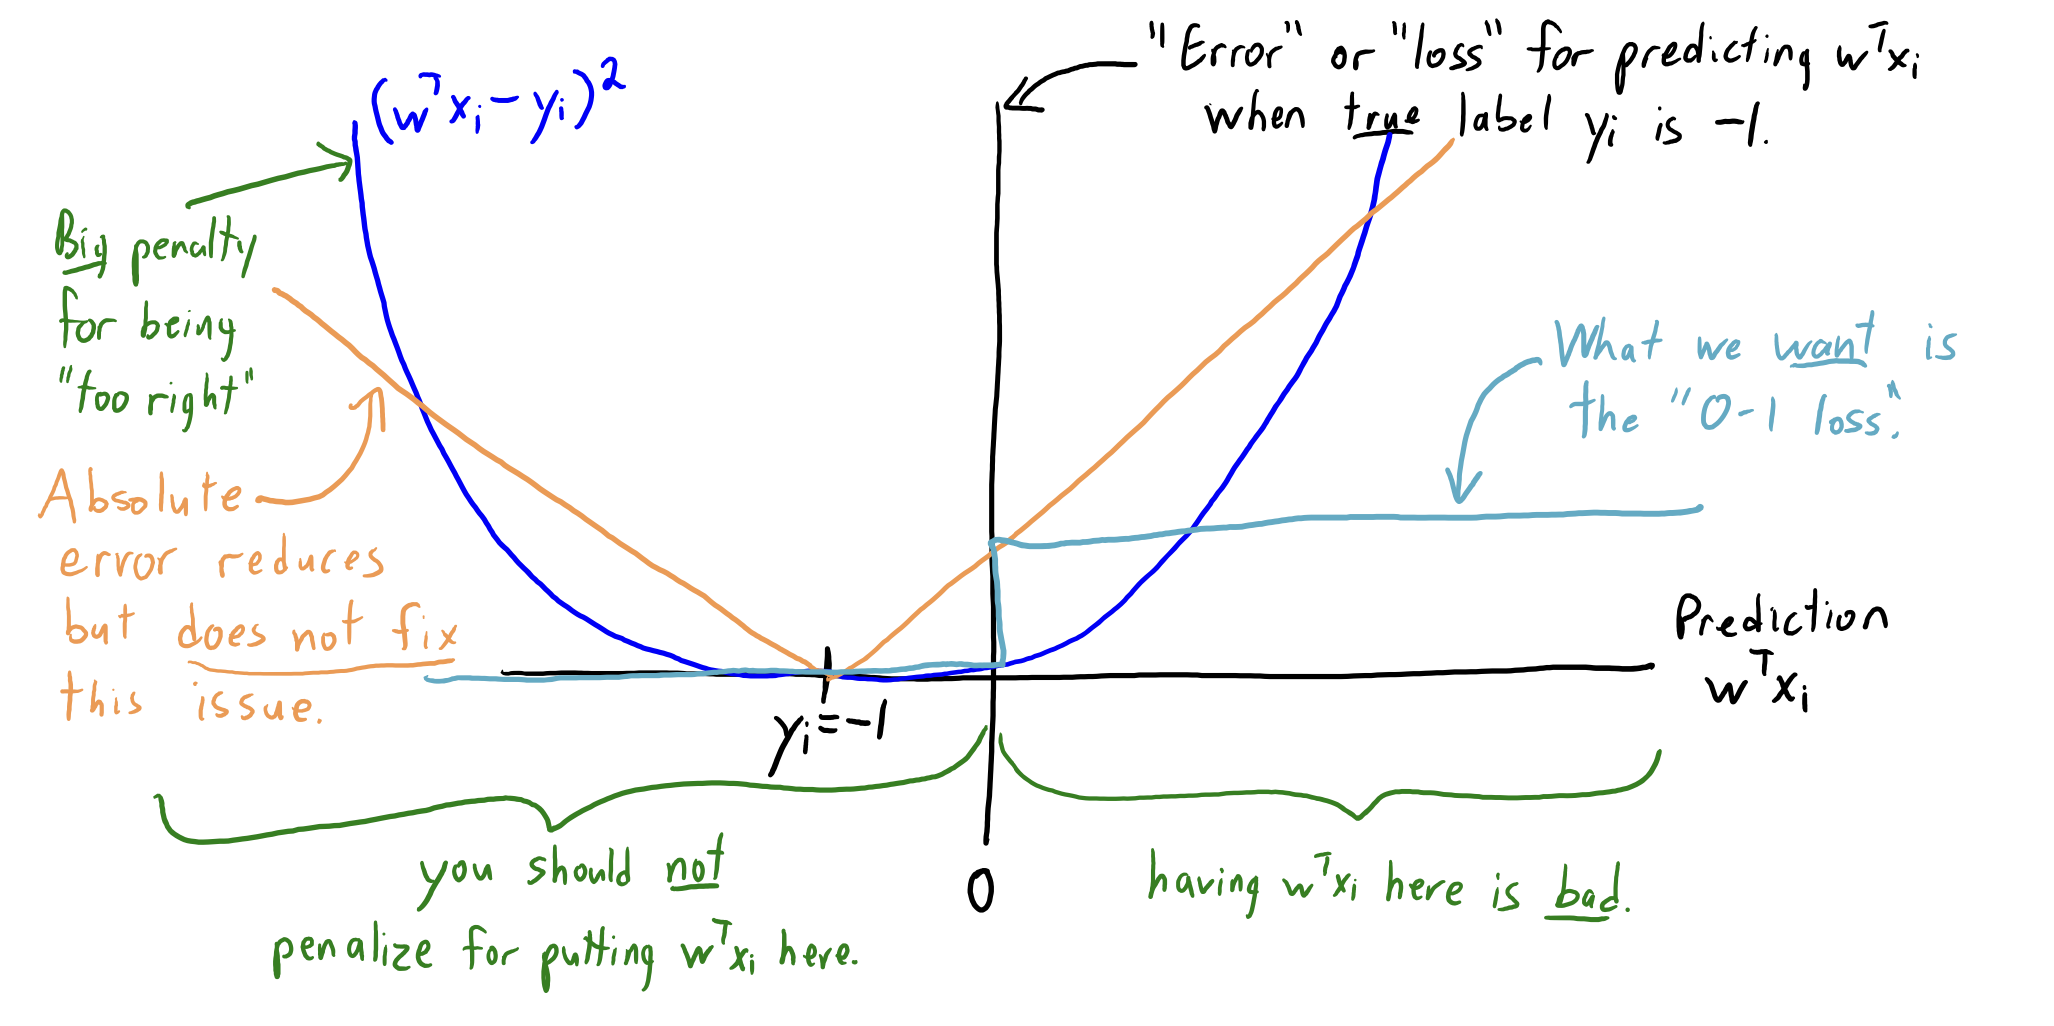 "Error" or "loss" for predicting wᵀxᵢ
when true label yᵢ is -1.
(wᵀxᵢ - yᵢ)²
Big penalty
for being
"too right"
Absolute
error reduces
but does not fix
this issue.
What we want is
the "0-1 loss".
Prediction
wᵀxᵢ
yᵢ = -1
0
you should not
penalize for putting wᵀxᵢ here.
having wᵀxᵢ here is bad.